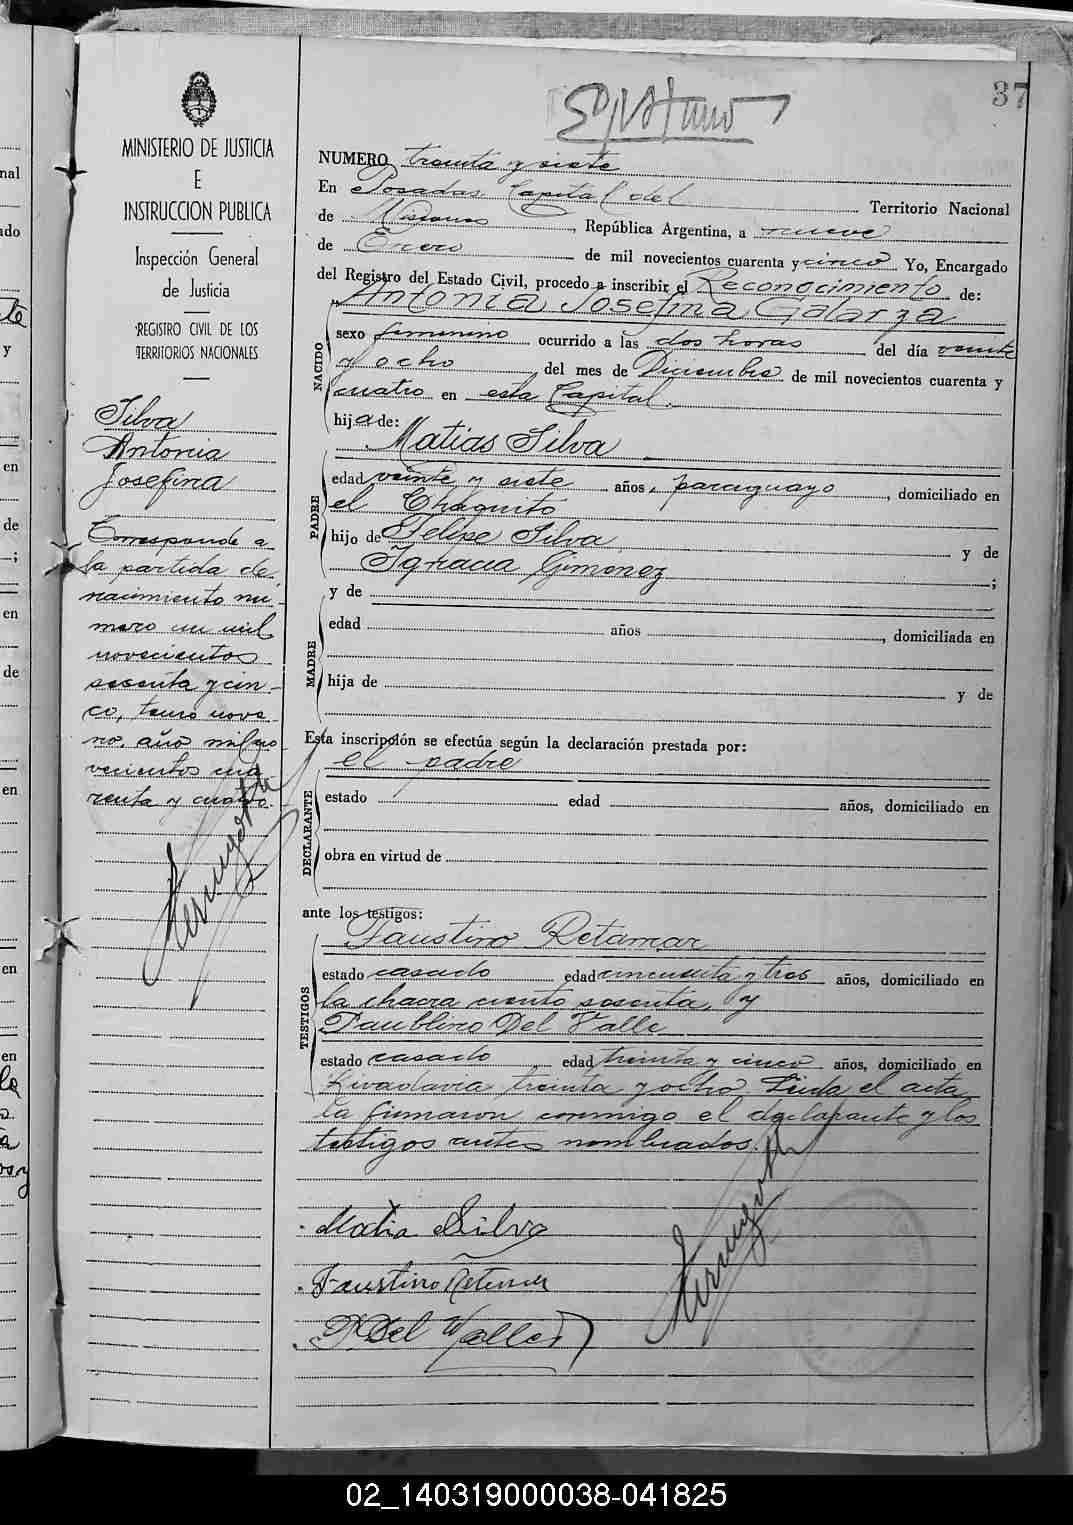 37
MINISTERIO DE JUSTICIA
E
INSTRUCCION PUBLICA
Inspección General
de Justicia
REGISTRO CIVIL DE LOS
TERRITORIOS NACIONALES
Silva
Antonia
Josefina
Corresponde a
la partida de
nacimiento nu-
mero un mil
novecientos
sesenta y cin-
co, tomo nove-
no, año mil no-
vecientos cua
renta y cuatro.
NUMERO treinta y siete
En Posadas Capital del Territorio Nacional
de Misiones, República Argentina, a nueve
de Enero de mil novecientos cuarenta y cinco Yo, Encargado
del Registro del Estado Civil, procedo a inscribir el Reconocimiento de:
Antonia Josefina Galarza
NACIDO
sexo femenino ocurrido a las dos horas del día veinte
y ocho del mes de Diciembre de mil novecientos cuarenta y
cuatro en esta Capital.
hija de:
Matias Silva
PADRE
edad veinte y siete años, paraguayo, domiciliado en
el Chaquito
hijo de Felipe Silva y de
Ignacia Gimenez;
y de
MADRE
edad años, domiciliada en
hija de y de
Esta inscripción se efectúa según la declaración prestada por:
el padre
DECLARANTE
estado edad años, domiciliado en
obra en virtud de
ante los testigos:
TESTIGOS
Faustino Retamar
estado casado edad cincuenta y tres años, domiciliado en
la chacra ciento sesenta, y
Paublino Del Valle
estado casado edad treinta y cinco años, domiciliado en
Rivadavia treinta y ocho. Leida el acta
la firmaron conmigo el declarante y los
testigos antes nombrados.
Matia Silva
Faustino Retamar
P Del Valle
02_140319000038-041825